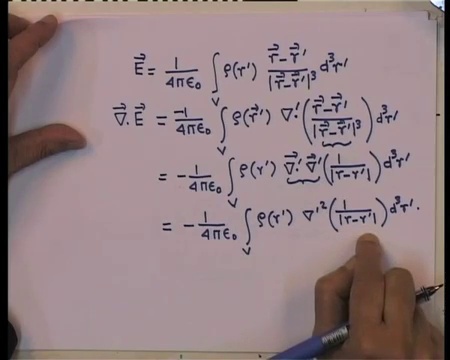 \vec{E} = \frac{1}{4\pi\epsilon_0} \int_V \rho(r') \frac{\vec{r}-\vec{r}'}{|\vec{r}-\vec{r}'|^3} d^3r'
\vec{\nabla}.\vec{E} = \frac{-1}{4\pi\epsilon_0} \int_V \rho(\vec{r}') \nabla'. \left( \frac{\vec{r}-\vec{r}'}{|\vec{r}-\vec{r}'|^3} \right) d^3r'
= -\frac{1}{4\pi\epsilon_0} \int_V \rho(r') \vec{\nabla}'.\vec{\nabla}' \left( \frac{1}{|r-r'|} \right) d^3r'
= -\frac{1}{4\pi\epsilon_0} \int_V \rho(r') \nabla'^2 \left( \frac{1}{|r-r'|} \right) d^3r'.